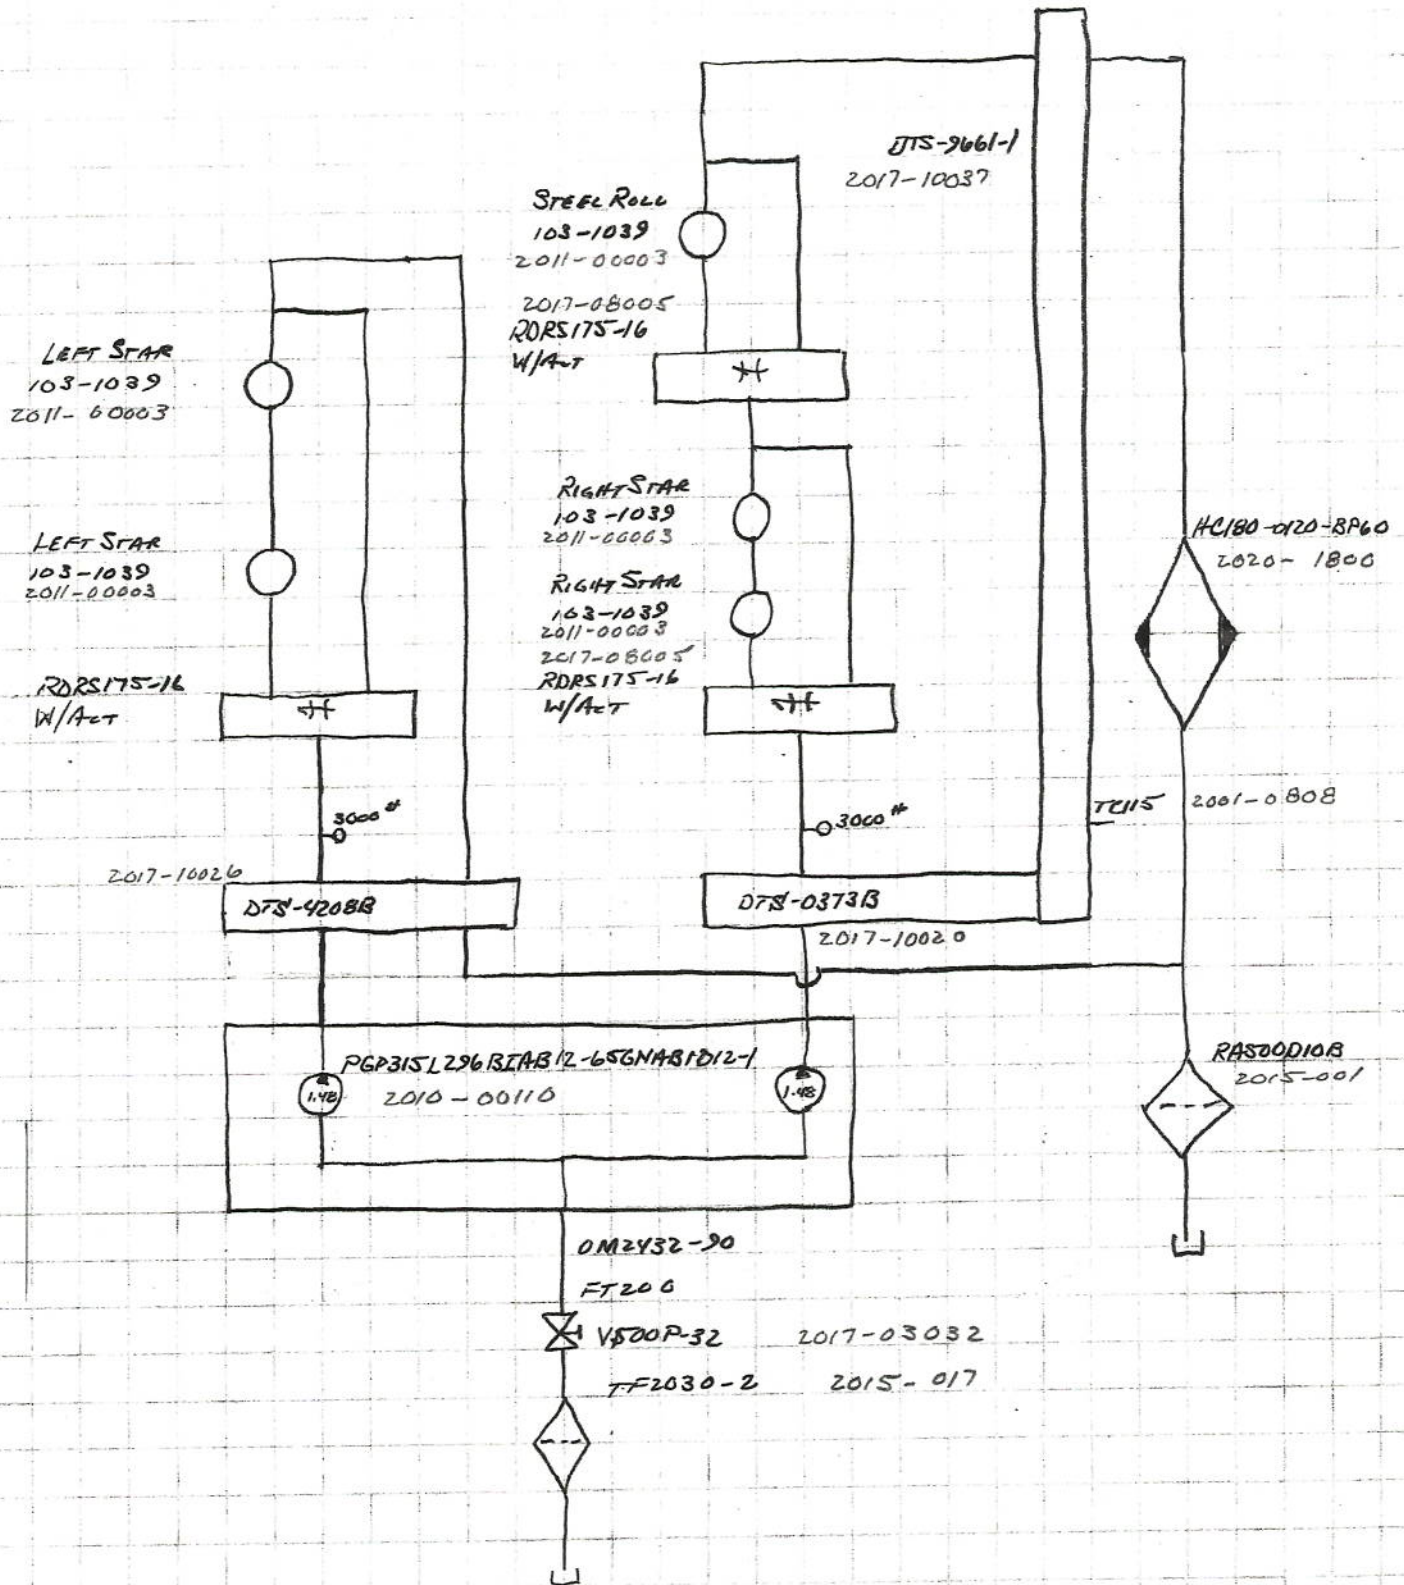 DTS-9661-1
2017-10037
STEEL ROLL
103-1039
2011-00003
2017-08005
RDRS175-16
W/ACT
LEFT STAR
103-1039
2011-00003
LEFT STAR
103-1039
2011-00003
RDRS175-16
W/ACT
RIGHT STAR
103-1039
2011-00003
RIGHT STAR
103-1039
2011-00003
2017-08005
RDRS175-16
W/ACT
HC180-0120-BP60
2020-1800
3000#
3000#
TC115
2001-0808
2017-10026
DTS-4208B
DTS-0373B
2017-10020
PGP315L296BIAB12-65GNAB1D12-1
1.48
2010-00110
1.48
RA500D10B
2015-001
OM2432-90
FT200
V500P-32
2017-03032
TF2030-2
2015-017